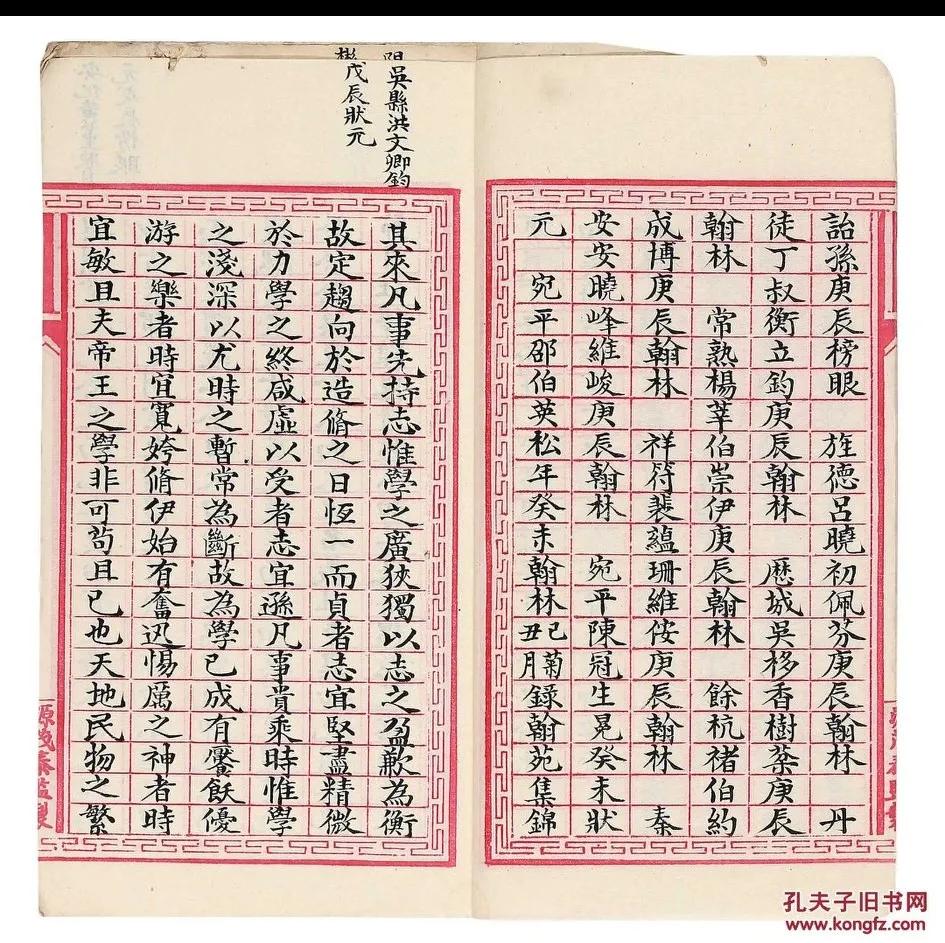 詒孫庚辰榜眼　旌德呂曉初佩芬庚辰翰林　丹
徒丁叔衡立鈞庚辰翰林　厯城吳移香樹棻庚辰
翰林　常熟楊莘伯崇伊庚辰翰林　餘杭褚伯約
成博庚辰翰林　祥符裴蘊珊維侒庚辰翰林　秦
安安曉峰維峻庚辰翰林　宛平陳冠生冕癸未狀
元　宛平邵伯英松年癸未翰林己丑菊月錄翰苑集錦
吳縣洪文卿鈞
彬戊辰狀元
其來凡事先持志惟學之廣狹獨以志之盈歉為衡
故定趨向於造脩之日恆一而貞者志宜堅盡精微
於力學之終咸虛以受者志宜遜凡事貴乘時惟學
之淺深以尤時之暫常為斷故為學已成有饜飫優
游之樂者時宜寬姱脩伊始有奮迅惕厲之神者時
宜敏且夫帝王之學非可苟且已也天地民物之繁
源茂泰監製
孔夫子旧书网
www.kongfz.com